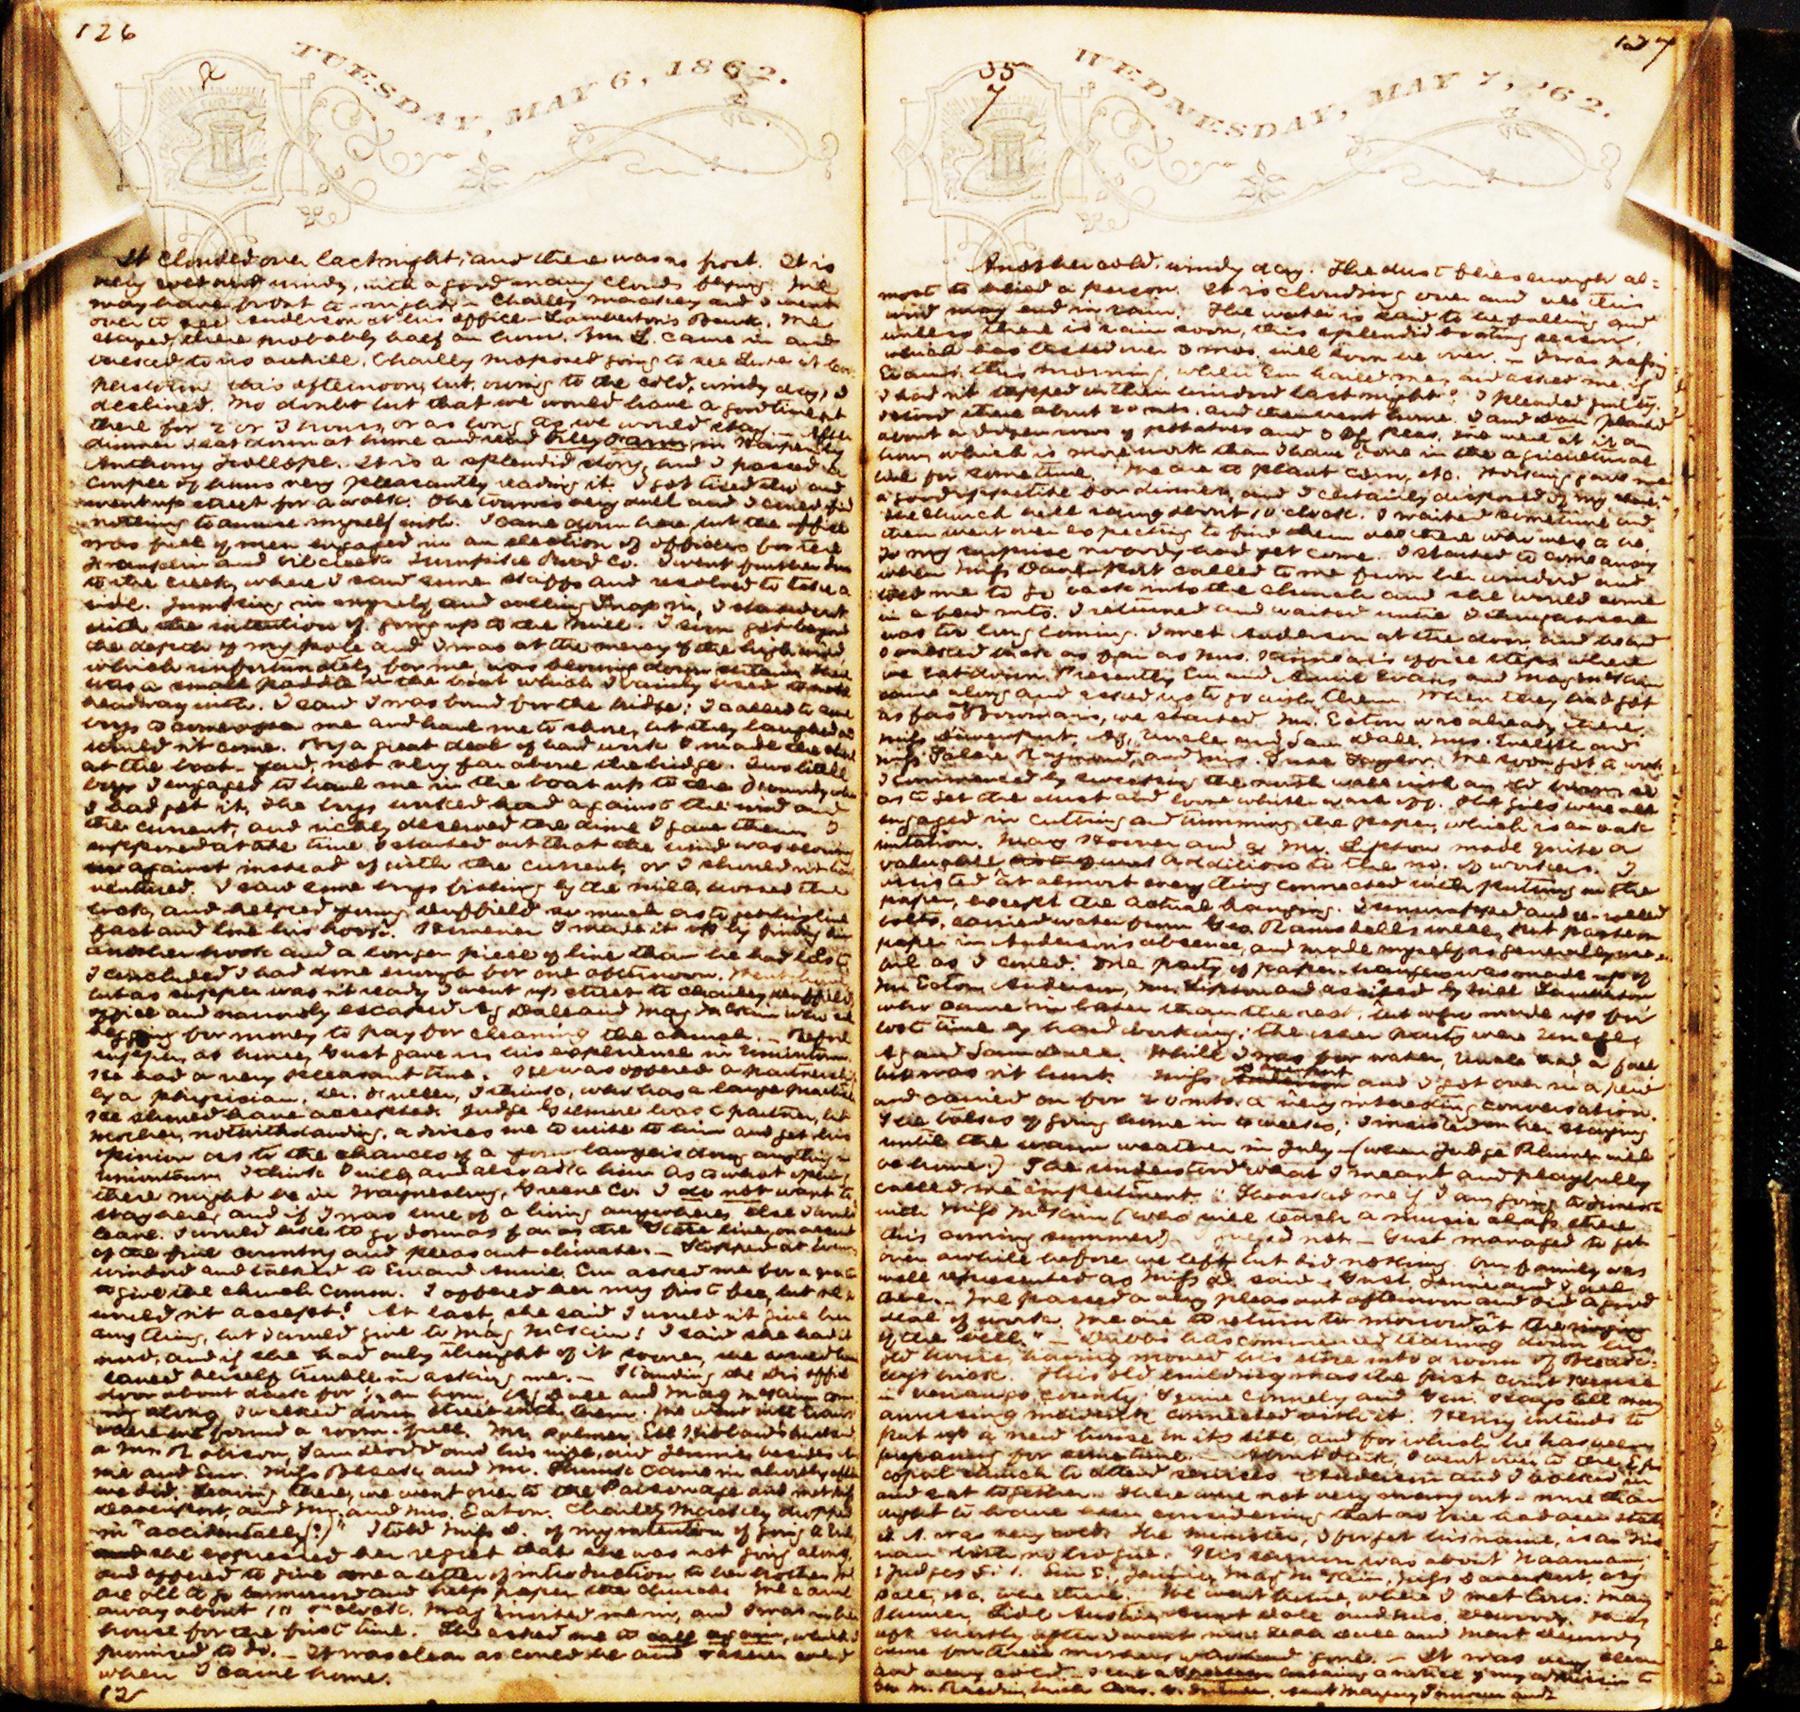 126
TUESDAY, MAY 6, 1862.
2
It clouded over last night, and there was no frost. It is
very cold and windy, with a good many clouds flying. We
may have frost to-night. Charley Mackey and I went
over to see Anderson at his office – Lamberton's Bank. We
stayed there probably half an hour. Mr. L. came in and
talked to us awhile. Charley proposed going to see
this afternoon, but, owing to the cold, windy day, I
declined. No doubt but that we would have a good time of it
there for 2 or 3 hours, or as long as we would stay. – After
dinner I sat down at home and read Orley Farm, in Harper, by
Anthony Trollope. It is a splendid story, and I passed a
couple of hours very pleasantly reading it. I got tired tho' and
went up street for a walk. The town is very dull and I could find
nothing to amuse myself with. I came down here but the office
was full of men engaged in an election of officers for the
Franklin and Oil Creek Turnpike Road Co. I went further down
to the creek, where I saw some skiffs and resolved to take a
ride. Jumping in myself and calling Snap in, I started out
with the intention of going up to the mill. I soon got beyond
the depth of my pole and I was at the mercy of the high wind
which unfortunately for me, was blowing down stream. There
was a small paddle in the boat which I vainly used to make
headway with. I saw I was bound for the bridge; I called to some
boys to come over me and haul me to shore, but they laughed and
would n't come. By a great deal of hard work I made the shore
at the boat-yard, not very far above the bridge. Two little
boys I engaged to haul me in the boat up to the where
I had got it. The boys worked hard against the wind and
the current, and richly deserved the dime I gave them. I
supposed at the time I started out that the wind was blowing
up against instead of with the current, or I should n't have
ventured. I saw some boys fishing by the mill, crossed the
creek, and helped young Duffield so much as to get his line
fast and lose his hook. However I made it up by finding him
another hook and a longer piece of line than he had lost.
I concluded I had done enough for one afternoon. Went home
but as supper was n't ready I went up street to Charley Duffield's
office and narrowly escaped Ag Dale and Mag McKim who were
begging for money to pay for cleaning the church. – Before
supper, at home, Gust gave us his experience in Uniontown.
He had a very pleasant time. He was offered a partnership
by a physician, Dr. Fuller, I think, who has a large practice.
He should have accepted. Judge Gilmore was a partner, but
mother, notwithstanding, advises me to write to him and get his
opinion as to the chances of a young lawyer's doing anything in
Uniontown. I think I will, and also ask him as to what opening
there might be in Waynesburg, Greene Co. I do not want to
stay here, and if I was sure of a living anywhere else I would
leave. I would like to go down as far as the State line, on account
of the fine country and pleasant climate. – Stopped at Evans'
window and talked to Em and Annie. Em asked me for a
to give the church comm. I offered her my first fee, but she
would n't accept! At last, she said I would n't give her
anything, but I would give to Mag McKim! I said she had it
now, and if she had only thought of it sooner, she would have
saved herself trouble in asking me. – Standing in the office
door about dusk for ½ an hour, Ag Dale and Mag McKim came
along. I walked down street with them. We went into Evans'
where we found a room-full. Mr. Palmer, Ell Hibbard's husband,
a Mr. Robison, Sam Dodd and his wife, and Jennie, besides
me and Em. Miss Bleak and Mr. came in shortly after
we did. Leaving there, we went over to the Parsonage and met Miss
Davenport, and Mr. and Mrs. Eaton. Charley Mackey dropped
in "accidentally(?)" I told Miss D. of my intention of going to Erie
and she expressed her regret that she was not going along,
and offered to give me a letter of introduction to her brother. We
are all to go tomorrow and help paper the church. We came
away about 10 o'clock. Mag invited me in, and I was in her
house for the first time. She asked me to call again, which I
promised to do. – It was clear as could be and rather cold
when I came home.
12
127
WEDNESDAY, MAY 7, '62.
35
7
Another cold, windy day. The dust flies enough al-
most to blind a person. It is clouding over and all this
wind may end in rain. The water is said to be falling and
unless there is rain soon, this splendid boating season,
which has lasted over 3 mos. will soon be over. – I was passing
Evans' this morning, when Em hailed me, and asked me if
I had n't tapped on their window last night? I pleaded guilty.
stood there about 20 mts. and then went home. I and Sam planted
about a dozen rows of potatoes and 3 of peas. We were at it an
hour, which is more work than I have done in the agricultural
line for sometime. We are to plant corn, etc. Working gave me
a good appetite for dinner, and I certainly disposed of my share.
The church bell rang about 1 o'clock. I waited sometime and
then went over expecting to find them all there who were to be.
To my surprise nobody had yet come. I started to come away
when Miss Davenport called to me from her window and
told me to go back into the church and she would come
in a few mts. I returned and waited until I thought she
was too long coming. I met Anderson at the door and he and
I walked back as far as Mrs. Kinnear's office steps where
we sat down. Presently Em and Annie Evans and Mag McKim
came along and asked us to go with them. When they had got
as far as Bowman's, we started. Mr. Eaton was already there,
Miss Davenport, Ag, Uncle and Sam Dale, Mrs. and
Miss Raymond, and Mrs. Taylor. We soon got to work.
I commenced by sweeping the north wall with an old broom so
as to get the dust and loose white wash off. The girls were all
engaged in cutting and trimming the paper, which is an oak
imitation. Mary Hoover and Mr. Lipton made quite a
valuable addition to the no. of workers. I
assisted at almost everything connected with putting on the
paper, except the actual hanging. I unwrapped and un-rolled
bolts, carried water from Geo. Ramsdell's well, put paste on
paper in Anderson's absence, and made myself as generally use-
ful as I could. One party of paper-hangers was made up of
Mr. Eaton, Anderson, Mr. Lipton and assisted by Will
who came in later than the rest, but who made up for
lost time by hard working; the other party were Uncle,
Ag and Sam Dale. While I was for water, Uncle had a fall
but was n't hurt. Miss Davenport and I got over in a pew
and carried on for 20 mts. a very interesting conversation.
She talks of going home in 4 weeks; I insisted on her staying
until the warm weather in July – (when Judge Plumer will
be home!) She understood what I meant and playfully
called me "impertinent." She asked me if I am going to
with Miss McKim (who will teach a music class there
this coming summer). I guessed not – Gust managed to get
over awhile before we left, but did nothing. Our family was
well represented as Miss D. said. Gust, Jennie and I all
there. We passed a very pleasant afternoon and did a good
deal of work. We are to return to-morrow "at the ringing
of the bell." – has commenced tearing down his
old house, having moved his store into a room of
brick. This old building was the first court house
in Venango County. Squire Connely and Gen. Hays tell many
amusing incidents connected with it. Henry intends to
put up a new house on its site, and for which he has been
preparing for sometime. – About dark, I went over to the Epis-
copal church to attend services. Anderson and I walked in
and sat together. There were not very many out – more than
ought to have been considering that no fire had been started
as it was very cold. The minister, I forget his name, is an Irish-
man with no brogue. His sermon was about Naaman:
Kings 5:1. Em E, Jennie, Mag McKim, Miss Davenport, Ag
Dale, etc. were there. We went home, where I met Mary
Aunt Dale and Mrs. left shortly after I went
came for their mothers – It was very clear
and very cold. – I sent a containing a notice of my admission to